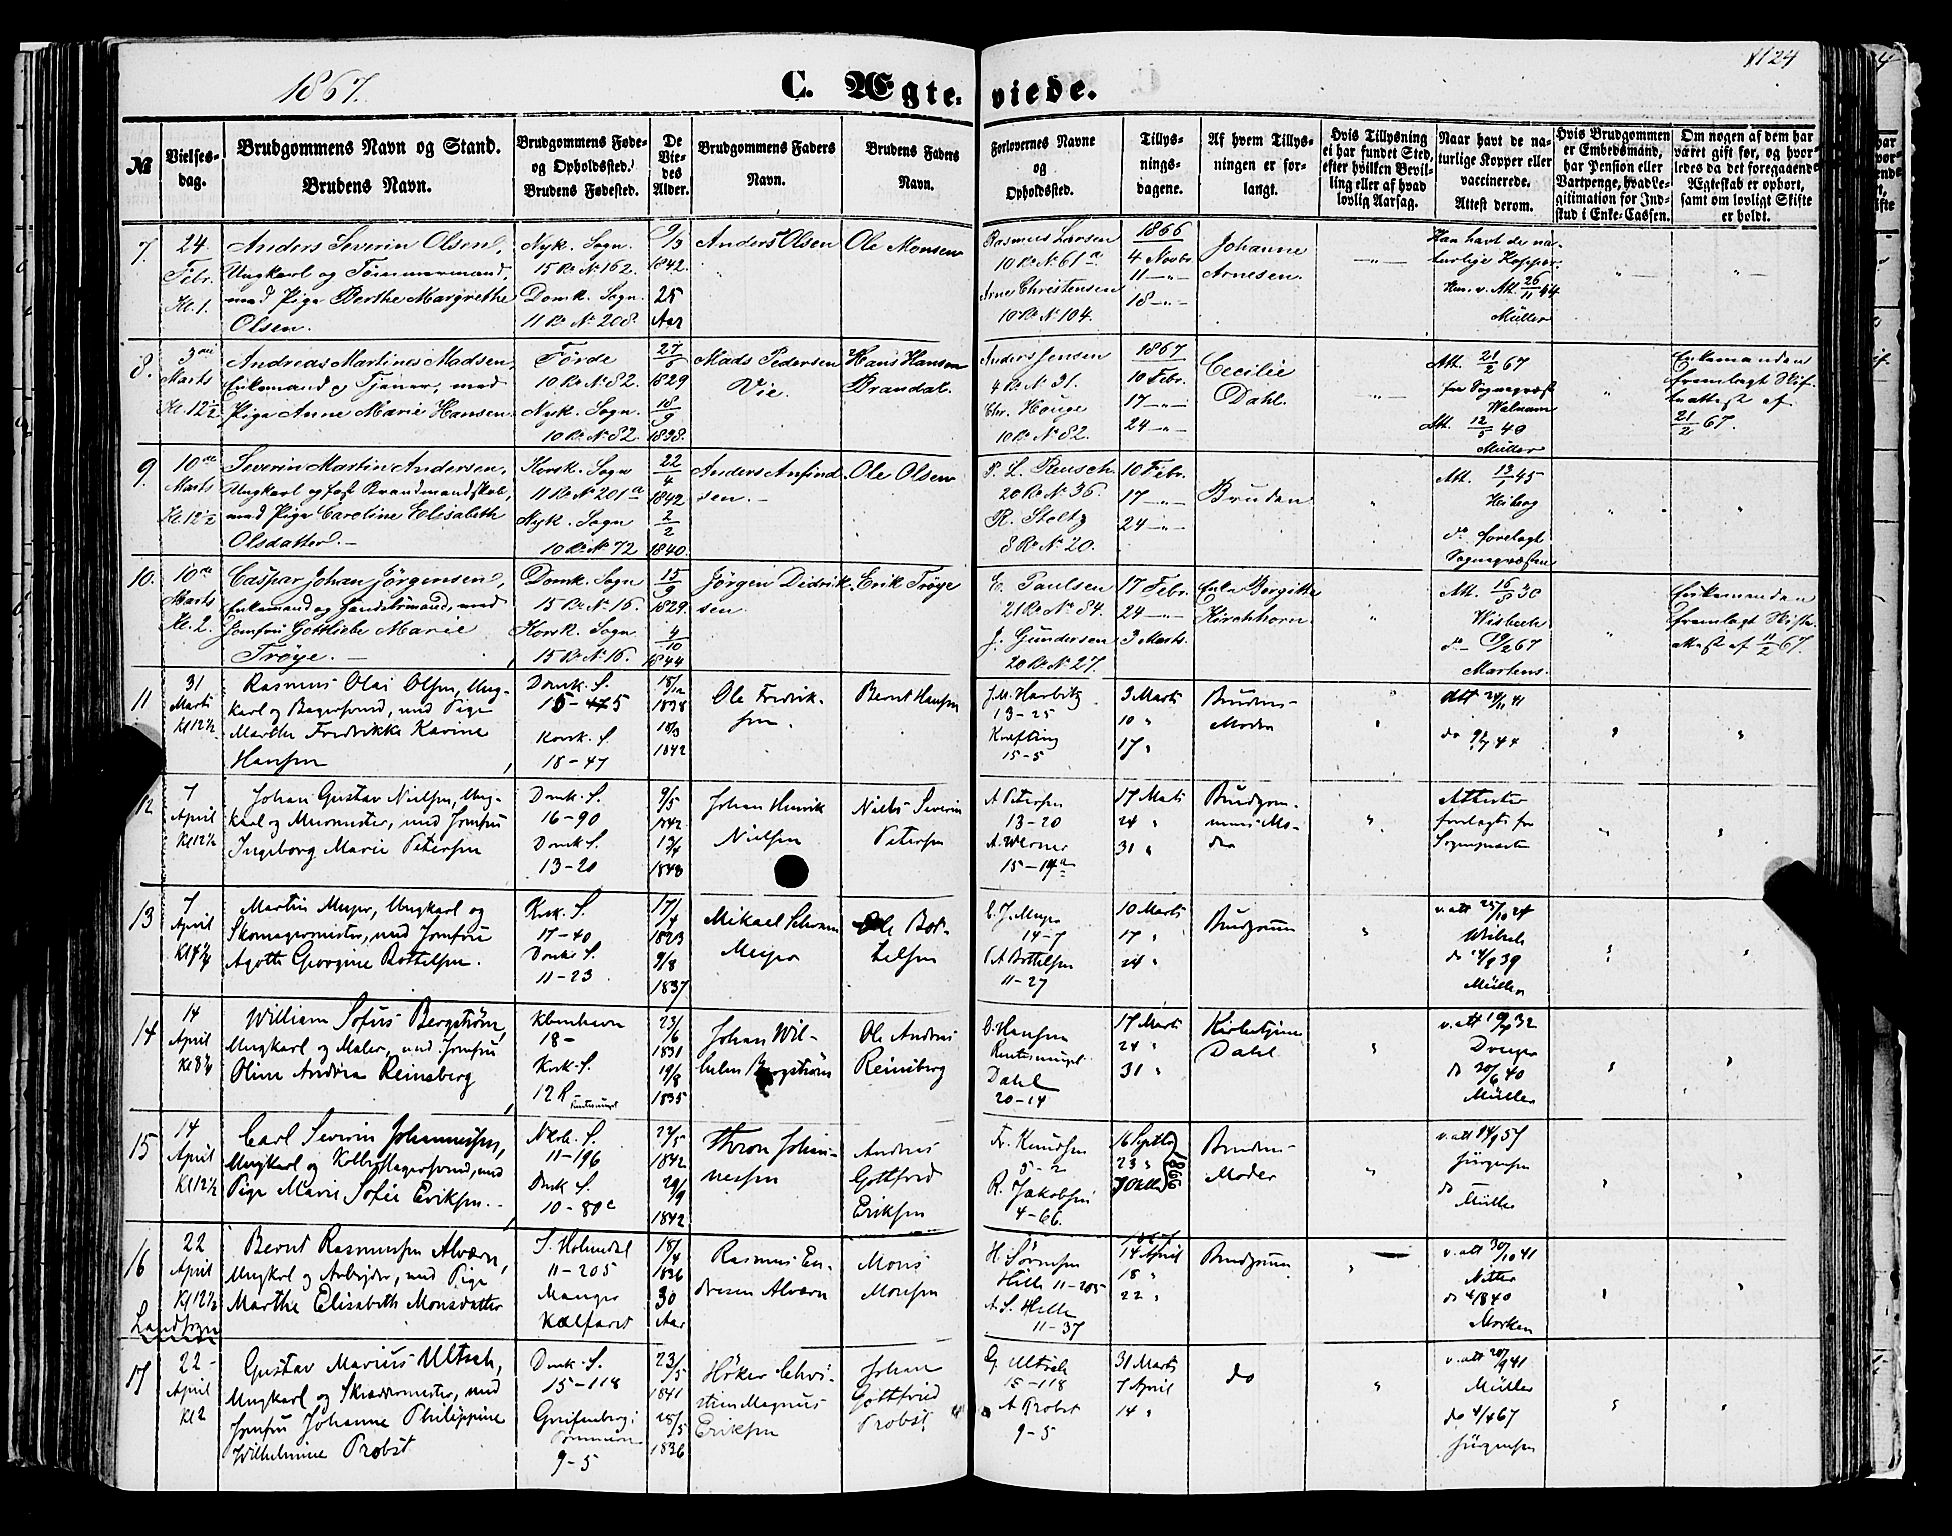 1867.
C. Ægteviede.
1124
№
Vielses-
dag.
Brudgommens Navn og Stand.
Brudens Navn.
Brudgommens Føde-
og Opholdssted.
Brudens Fødested.
De
Vie-
des
Alder.
Brudgommens Faders
Navn.
Brudens Faders
Navn.
Forlovernes Navne
og
Opholdssted.
Tillys-
nings-
dagene.
Af hvem Tillys-
ningen er for-
langt.
Hvis Tillysning
ei har fundet Sted,
efter hvilken Bevil-
ling eller af hvad
lovlig Aarsag.
Naar havt de na-
turlige Kopper eller
vaccinerede.
Attest derom.
Hvis Brudgommen
er Embedsmand,
har Pension eller
Vartpenge, hvad Le-
gitimation for Ind-
skud i Enke-Cassen.
Om nogen af dem har
været gift før, og hvor-
ledes da det foregaaende
Ægteskab er ophørt,
samt om lovligt Skifte
er holdt.
7.
24.
Febr.
Kl. 1.
Anders Severin Olsen,
Ungkarl og Tømmermand,
med Pige Berthe Margrethe
Olsen.
Nyk. Sogn.
15 R. N. 162.
Domk. Sogn.
11 R. N. 208.
9/3
1842.
25
Aar
Anders Olsen
Ole Monsen
Rasmus Larsen
10 R. N. 61 a
Arne Christensen
10 R. N. 104.
1866
4 Novbr.
11 —„—
18 —„—
Johanne
Arnesen.
Han havt de na-
turlige Kopper.
Hun v. Att. 26/11 44
Müller
8.
3die
Marts
Kl. 12½
Andreas Martines Madsen,
Enkemand og Tjener, med
Pige Anne Marie Hansen.
Førde
10 R. N. 82.
Nyk. Sogn.
10 R. N. 82.
27/5
1829
18/9
1838.
Mads Pedersen
Vie.
Hans Hansen
Brandal.
Anders Jensen
4 R. N. 31.
Chr. Houge
10 R. N. 82.
1867
10 Febr.
17 —„—
24 —„—
Cecilie
Dahl.
Att. 21/2 67
fra Sognepræst
Walnum
Att. 12/5 40
Müller
Enkemanden
fremlagt Skif-
teattest af
21/2 67.
9.
10de
Marts
Kl. 12½
Severin Martin Andersen,
Ungkarl og fast Brandmandskab,
med Pige Caroline Elisabeth
Olsdatter. —
Korsk. Sogn
11 R. N. 201 a
Nyk. Sogn
10 R. N. 72
22/4
1842
2/2
1840.
Anders Anfind-
sen. —
Ole Olsen
P. L. Reusch
20 R. N. 36.
R. Stoltz
8 R. N. 20.
10 Febr.
17 —„—
24 —„—
Bruden
Att. 13/1 45
Heiberg
do forelagt
Sognepræsten
10.
10de
Marts
Kl. 2.
Caspar Johan Jørgensen,
Enkemand og Handelsmand, med
Jomfru Gottliebe Marie
Trøye. —
Domk. Sogn
15 R. N. 16.
Korsk. Sogn
15 R. N. 16.
15/9
1829.
4/10
1844
Jørgen Didrik-
sen
Erik Trøye
E. Paulsen
21 R. N. 84.
J. Gundersen
20 R. N. 27.
17 Febr.
24 —„—
3 Marts.
Enke Birgitte
Kirchhorn
Att. 16/8 30
Wisbech
do 19/2 67
Martens.
Enkemanden
fremlagt Skifte-
attest af 11/2 67.
11
31
Marts
Kl 12½
Rasmus Olai Olsen, Ung-
karl og Bagersvend, med Pige
Marthe Fredrikke Karine
Hansen
Domk. S.
15-475
Korsk. S.
18-47
18/12
1838
18/3
1842
Ole Fredrik-
sen.
Bernt Hansen
J. M. Harbitz
13-25
15-5
3 Marts
10 „
17 „
Brudens
Moder
Att 24/11 41
do 9/7 44
12
7
April
Kl 12½
Johan Gustav Nielsen, Ung-
karl og Murmester, med Jomfru
Ingeborg Marie Petersen
Domk. S.
16-90
Domk S.
13-20
9/5
1842
13/4
1843
Johan Henrik
Nielsen
Niels Severin
Petersen
A Petersen
13-20
A. Werner
15-14a
17 Marts
24 „
31 „
Brudgom-
mens Mo-
der
Attester
forelagte fra
Sognepræsten
13
7
April
Martin Meyer, Ungkarl og
Skomagermester, med Jomfru
Agothe Georgine Bottelsen.
Krsk. S.
17-40
Domk. S.
11-23
17/4
1823
9/8
1837
Mikael
Meyer
Ole Bot-
telsen
C. J. Meyer
14-7
A Bottelsen
11-27
10 Marts
17 „
24 „
Brudgom
v. att 25/10 24
Wisbech
do 14/8 39
Müller
14
14
April
William Sofus Bergstrøm,
Ungkarl og Maler, med Jomfru
Oline Andrea Reinsberg
Kbenhavn
18-
Korsk-S.
12 R
23/6
1831
19/8
1835
Johan Wil-
helm Bergstrøm
Ole Andreas
Reinsberg
O. Hansen
Dahl
20-14
17 Marts
24 „
31 „
Kirketjener
Dahl
v. att 19/7 32
do 20/6 40
Müller
15
14
April
Kl 12½
Carl Severin Johannesen,
Ungkarl og Kobberslagersvend, med
Pige Marie Sofie Eriksen. -
Nkrk. S.
11-196
Dmk S.
10-80c
24/5
1842
29/9
1842
Johan-
nessen
Andreas
Gottfred
Eriksen
Fr. Knudsen
5-2
R. Jakobsen
4-66.
16 Septbr
23 „
7 Oktbr
1866
Brudens
Moder
v. att 24/9 57
Jürgensen
do
Müller
16
22
April
Kl 12½
Landsogn
Bernt Rasmussen Alværn,
Ungkarl og Arbejder, med Pige
Marthe Elisabeth Monsdatter
11-205
Manger
Kalfaret
18/4
1836
30
Aar
Rasmus En-
dresen Alværn
Mons
Monsen
H. Sørensen
Hille 11-205
A. S. Helle
11-37
1867
14 April
18 „
22 „
Brudgom
v. att 30/10 41
Nitter
do 4/8 40
Morken
17
22-
April
Kl 2
Gustav Marius Ultsch,
Ungkarl og Skræddermester, med
Jomfru Johanne Philippine
Wilhelmine Probst
Domk-S.
15-118
Greifenberg i
Pommern
9-5
23/5
1841
28/5
1836
Høker Chri-
stian Magnus
Eriksen
Johan
Gottfried
Probst
G. Ultsch
15-118
A Probst
9-5
31 Marts
7 April
14 „
do
v. att 20/9 41
Müller
do 4/4 67
Jürgensen